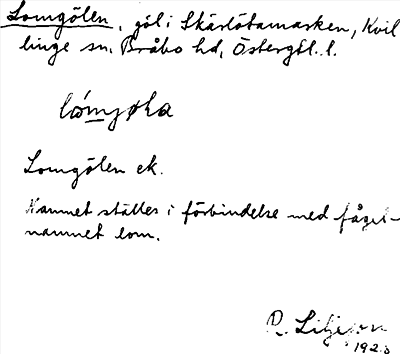 Lomgölen, göl i Skärlötamarken, Kvil
linge sn, Bråbo hd, Östergöl. l.
Lomgölen ek.
Namnet ställes i förbindelse med fågel-
namnet lom.